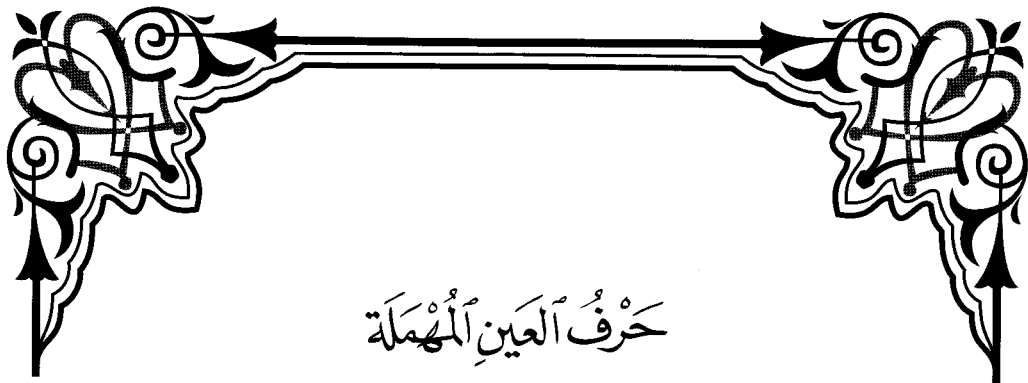 حَرْفُ ٱلعَينِ ٱلمُهْمَلَة